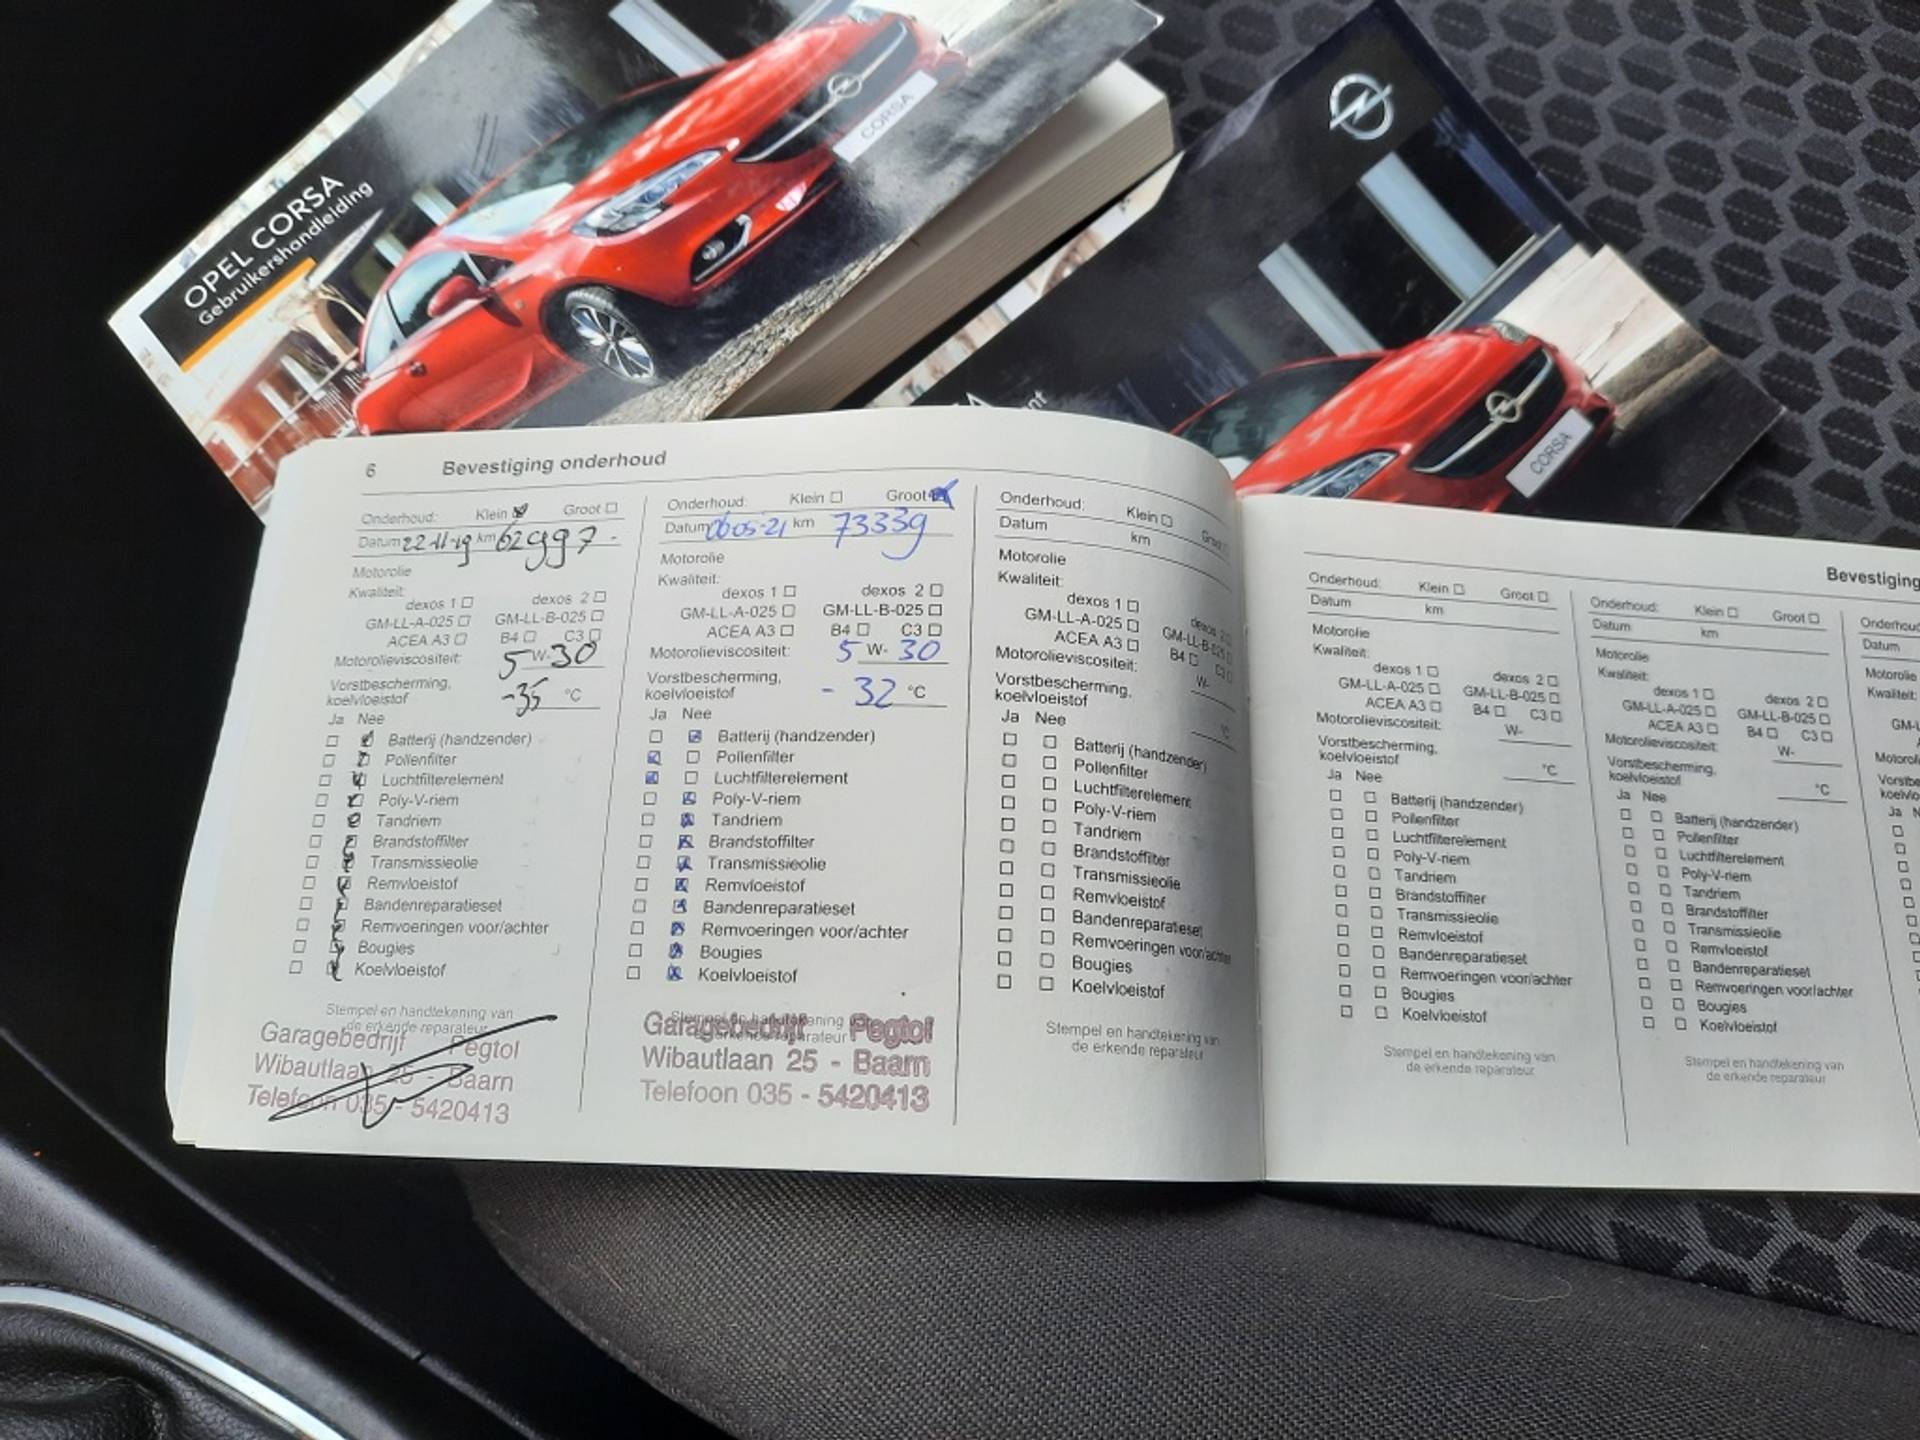 OPEL CORSA
Gebruikershandleiding
CORSA
CORSA
6 Bevestiging onderhoud
Onderhoud: Klein Groot
Datum 22-11-19 km 62997
Motorolie
Kwaliteit:
dexos 1 dexos 2
GM-LL-A-025 GM-LL-B-025
ACEA A3 B4 C3
Motorolieviscositeit: 5 W- 30
Vorstbescherming,
koelvloeistof -35 °C
Ja Nee
Batterij (handzender)
Pollenfilter
Luchtfilterelement
Poly-V-riem
Tandriem
Brandstoffilter
Transmissieolie
Remvloeistof
Bandenreparatieset
Remvoeringen voor/achter
Bougies
Koelvloeistof
Stempel en handtekening van
de erkende reparateur
Garagebedrijf Pegtol
Wibautlaan 25 - Baarn
Telefoon 035 - 5420413
Onderhoud: Klein Groot
Datum 06-05-21 km 73339
Motorolie
Kwaliteit:
dexos 1 dexos 2
GM-LL-A-025 GM-LL-B-025
ACEA A3 B4 C3
Motorolieviscositeit: 5 W- 30
Vorstbescherming,
koelvloeistof - 32 °C
Ja Nee
Batterij (handzender)
Pollenfilter
Luchtfilterelement
Poly-V-riem
Tandriem
Brandstoffilter
Transmissieolie
Remvloeistof
Bandenreparatieset
Remvoeringen voor/achter
Bougies
Koelvloeistof
Garagebedrijf Pegtol
Wibautlaan 25 - Baarn
Telefoon 035 - 5420413
Onderhoud: Klein Groot
Datum km
Motorolie
Kwaliteit:
dexos 1 dexos 2
GM-LL-A-025 GM-LL-B-025
ACEA A3 B4 C3
Motorolieviscositeit: W-
Vorstbescherming,
koelvloeistof °C
Ja Nee
Batterij (handzender)
Pollenfilter
Luchtfilterelement
Poly-V-riem
Tandriem
Brandstoffilter
Transmissieolie
Remvloeistof
Bandenreparatieset
Remvoeringen voor/achter
Bougies
Koelvloeistof
Stempel en handtekening van
de erkende reparateur
Bevestiging
Onderhoud: Klein Groot
Datum km
Motorolie
Kwaliteit:
dexos 1 dexos 2
GM-LL-A-025 GM-LL-B-025
ACEA A3 B4 C3
Motorolieviscositeit: W-
Vorstbescherming,
koelvloeistof °C
Ja Nee
Batterij (handzender)
Pollenfilter
Luchtfilterelement
Poly-V-riem
Tandriem
Brandstoffilter
Transmissieolie
Remvloeistof
Bandenreparatieset
Remvoeringen voor/achter
Bougies
Koelvloeistof
Stempel en handtekening van
de erkende reparateur
Onderhoud: Klein Groot
Datum km
Motorolie
Kwaliteit:
dexos 1 dexos 2
GM-LL-A-025 GM-LL-B-025
ACEA A3 B4 C3
Motorolieviscositeit: W-
Vorstbescherming,
koelvloeistof °C
Ja Nee
Batterij (handzender)
Pollenfilter
Luchtfilterelement
Poly-V-riem
Tandriem
Brandstoffilter
Transmissieolie
Remvloeistof
Bandenreparatieset
Remvoeringen voor/achter
Bougies
Koelvloeistof
Stempel en handtekening van
de erkende reparateur
Datum
Motorolie
Kwaliteit:
Ja